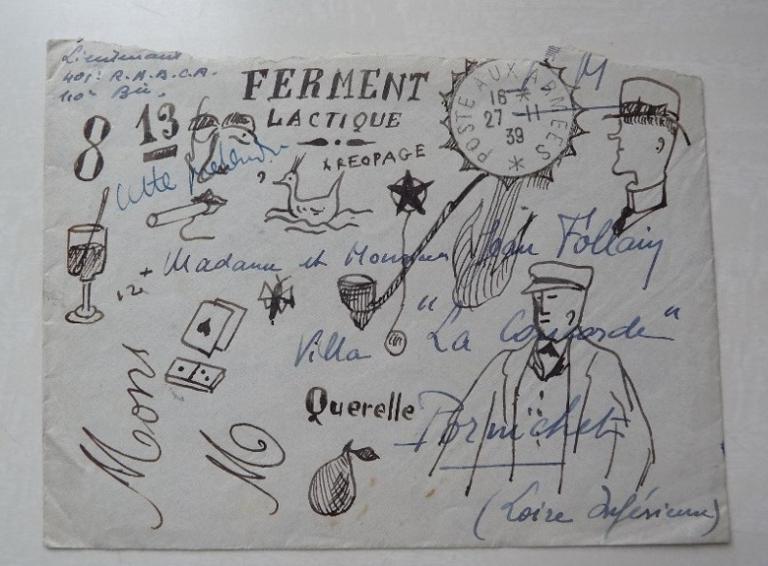 Lieutenant
401e R.A.A.C.A.
110e Bie.
FERMENT
LACTIQUE
AREOPAGE
8
13
POSTE AUX ARMEES
16 *
27 - 11
39
*
M
Cette
Madame et Monsieur Jean Follain
Villa "La Concorde"
Querelle
Pornichet
(Loire Inférieure)
Mons
M